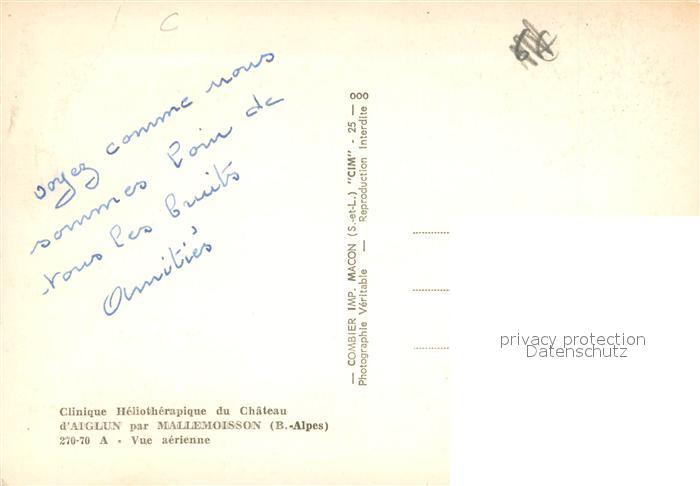 voyez comme nous
sommes loin de
tous les bruits
Amitiés
Clinique Héliothérapique du Château
d'AIGLUN par MALLEMOISSON (B.-Alpes)
270-70 A - Vue aérienne
— COMBIER IMP. MACON (S.-et-L.) "CIM" - 25 — 000
Photographie Véritable — Reproduction Interdite
privacy protection
Datenschutz